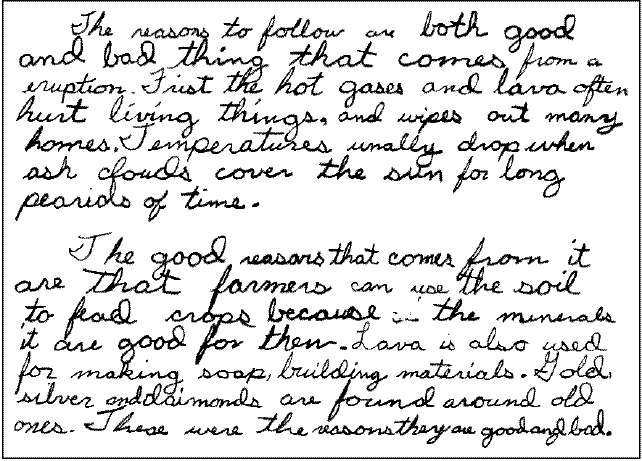 The reasons to follow are both good
and bad thing that comes from a
eruption. Frist the hot gases and lava often
hurt living things, and wipes out many
homes. Temperatures usually drop when
ash clouds cover the sun for long
pearids of time.
The good reasons that comes from it
are that farmers can use the soil
to fead crops because the minerals
it are good for them. Lava is also used
for making soap, building materials. Gold,
silver and daimonds are found around old
ones. These were the reasons they are good and bad.